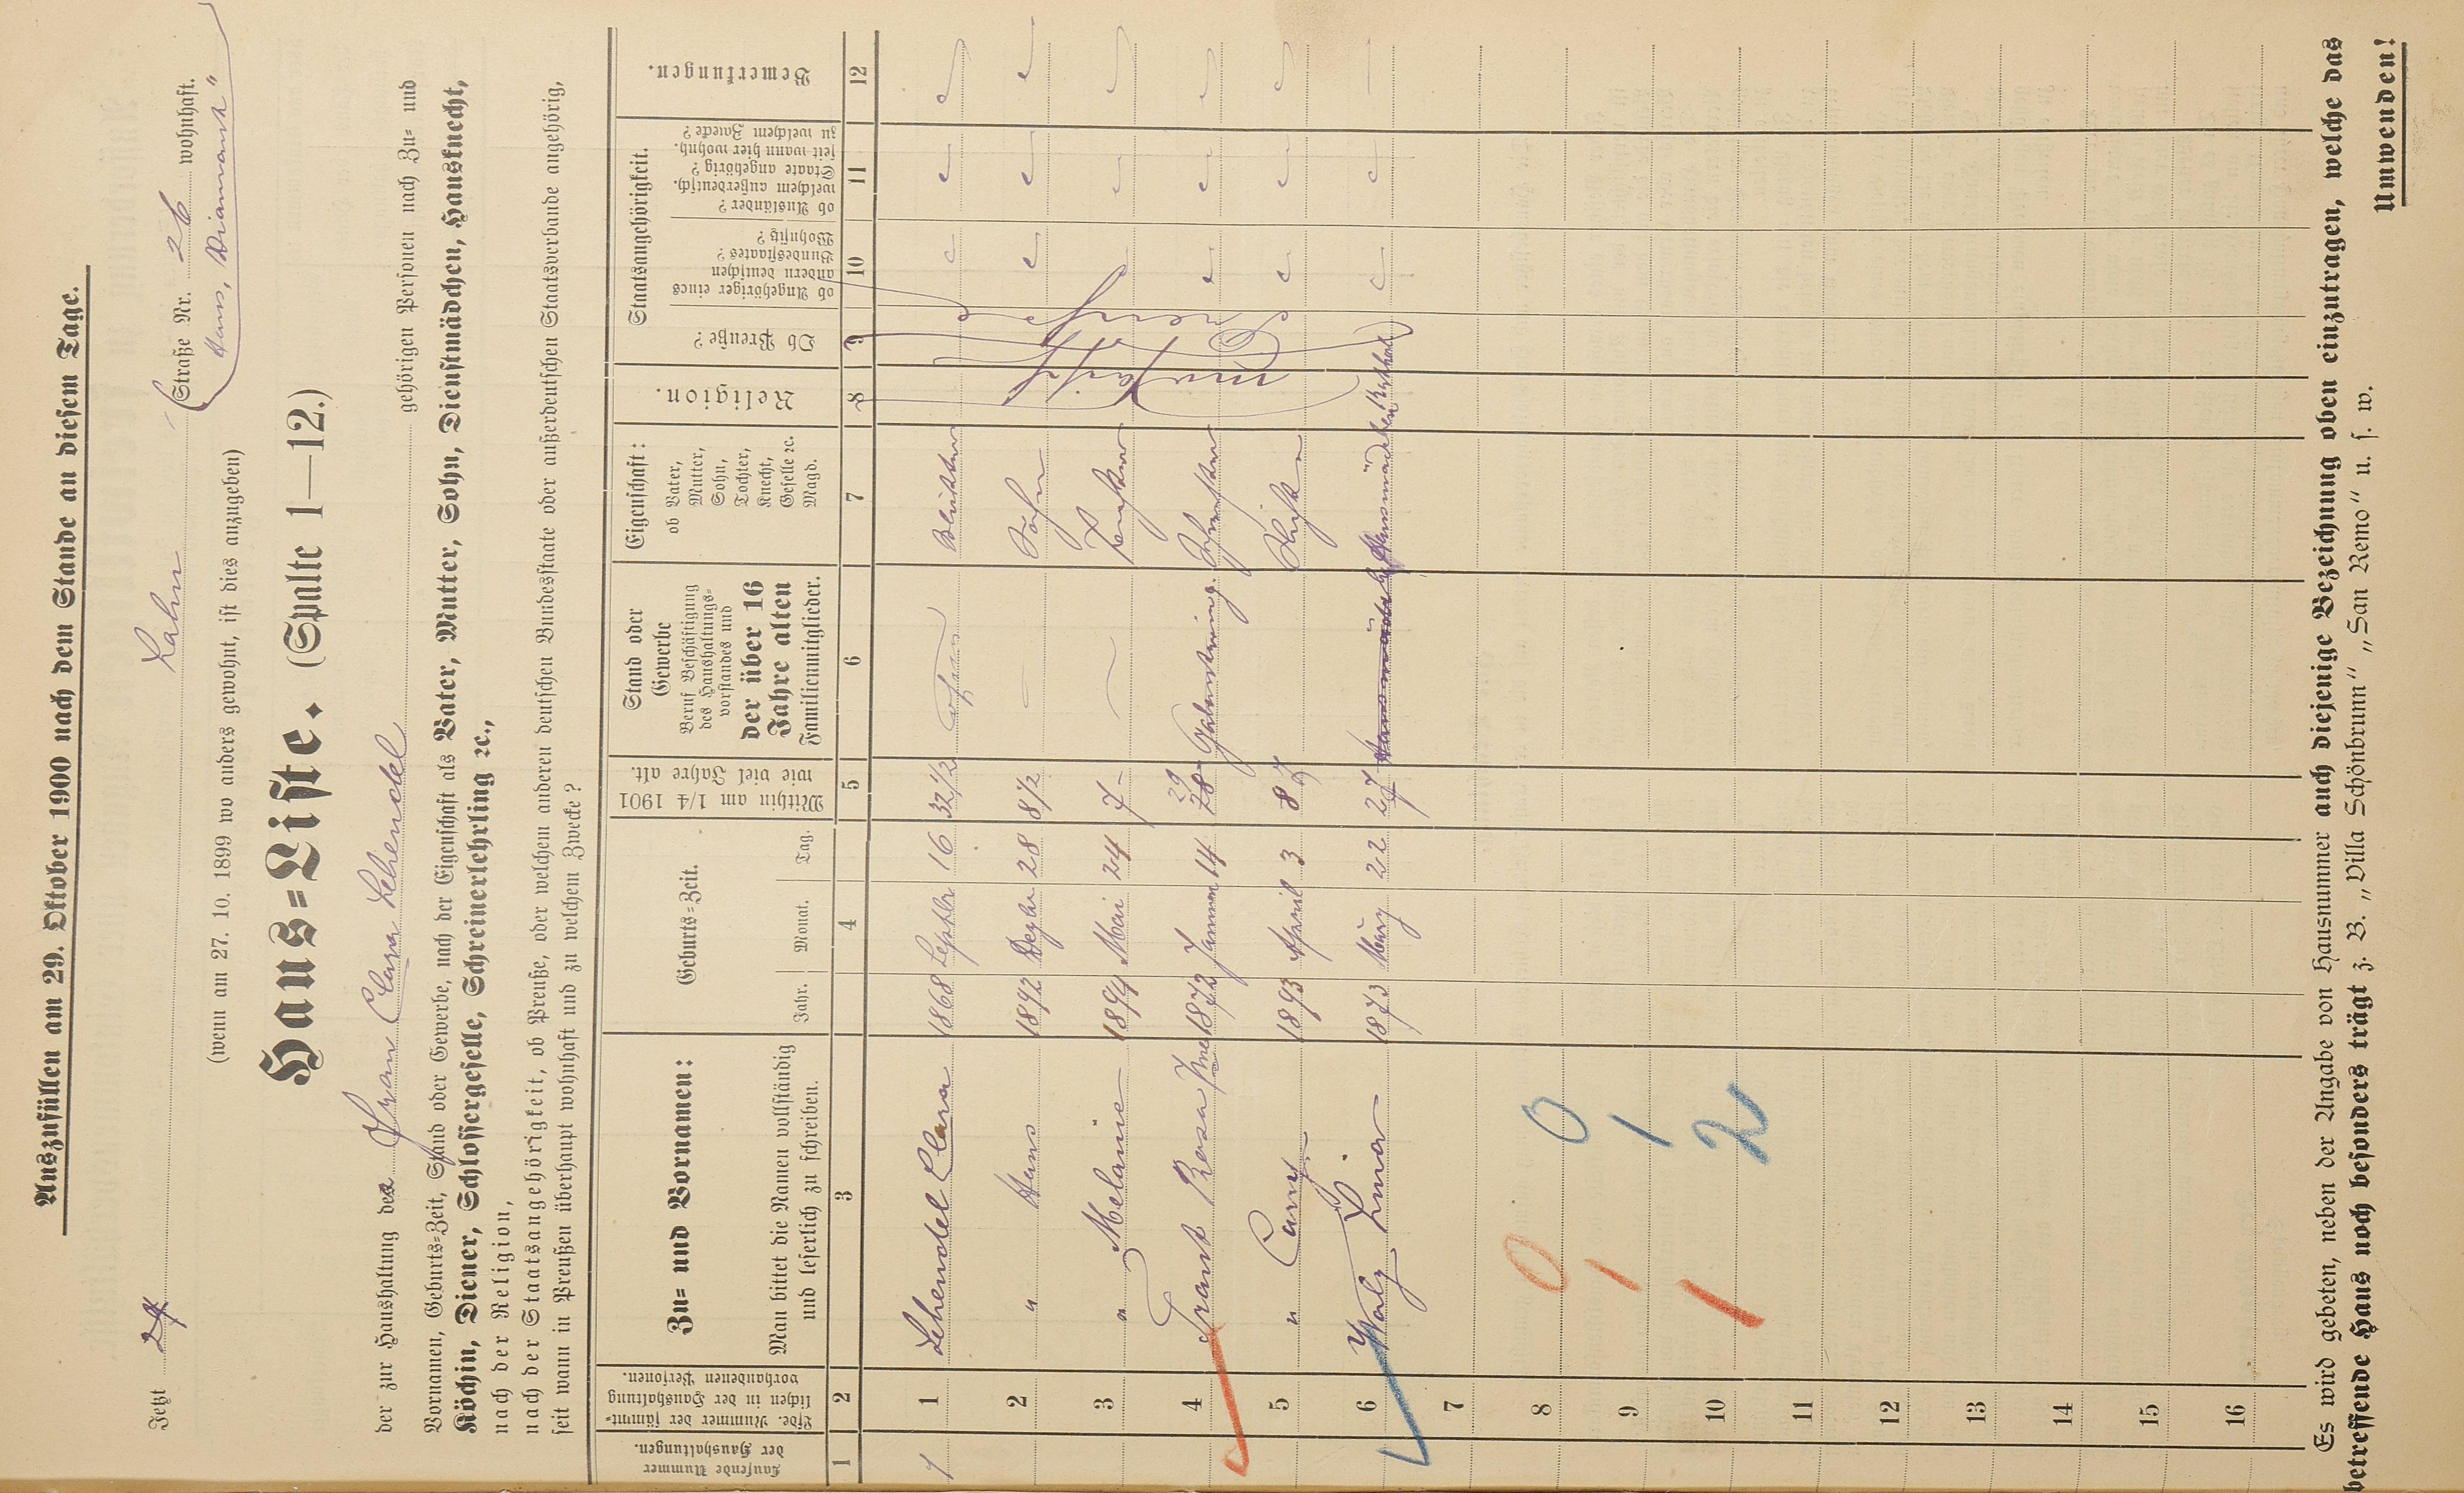 Auszufüllen am 29. Oktober 1900 nach dem Stande an diesem Tage.
Jetzt 24 Lahn Straße Nr. 26 wohnhaft.
(wenn am 27. 10. 1899 wo anders gewohnt, ist dies anzugeben) Haus „Diamant"
Haus=Liste. (Spalte 1—12.)
der zur Haushaltung der Frau Clara Lehendel gehörigen Personen nach Zu= und
Vornamen, Geburts=Zeit, Stand oder Gewerbe, nach der Eigenschaft als Vater, Mutter, Sohn, Dienstmädchen, Hausknecht,
Köchin, Diener, Schlossergeselle, Schreinerlehrling ꝛc.,
nach der Religion,
nach der Staatsangehörigkeit, ob Preuße, oder welchem anderen deutschen Bundesstaate oder außerdeutschen Staatsverbande angehörig,
seit wann in Preußen überhaupt wohnhaft und zu welchem Zwecke?
Laufende Nummer der Haushaltungen.
Lfde. Nummer der sämmt=lichen in der Haushaltung vorhandenen Personen.
Zu= und Vornamen:
Man bittet die Namen vollständig und leserlich zu schreiben.
Geburts=Zeit.
Jahr. Monat. Tag.
Mithin am 1/4 1901 wie viel Jahre alt.
Stand oder Gewerbe
Beruf Beschäftigung des Haushaltungs=vorstandes und
der über 16 Jahre alten Familienmitglieder.
Eigenschaft:
ob Vater, Mutter, Sohn, Tochter, Knecht, Geselle ꝛc. Magd.
Religion.
Staatsangehörigkeit.
Ob Preuße?
ob Angehöriger eines andern deutschen Bundesstaates? Wohnsitz?
ob Ausländer? welchem außerdeutsch. Staate angehörig? seit wann hier wohnh. zu welchem Zwecke?
Bemerkungen.
1 2 3 4 5 6 7 8 9 10 11 12
1 1 Lehendel Clara 1868 Septbr 16 32 1/2
2 " Hans 1892 Dezbr 28 8 1/2 Sohn
3 " Melanie 1894 Mai 24 7 Tochter
4 Frank Rosa 1872 Januar 14 29 Schwester
5 " Carry 1893 April 3 8 Nichte
6 Walz Lina 1873 März 22 27 Hausmädchen kathol
7
8 0 0
9 1 1
10 1 2
11
12
13
14
15
16
Es wird gebeten, neben der Angabe von Hausnummer auch diejenige Bezeichnung oben einzutragen, welche das
betreffende Haus noch besonders trägt z. B. „Villa Schönbrunn" „San Remo" u. s. w.
Umwenden!